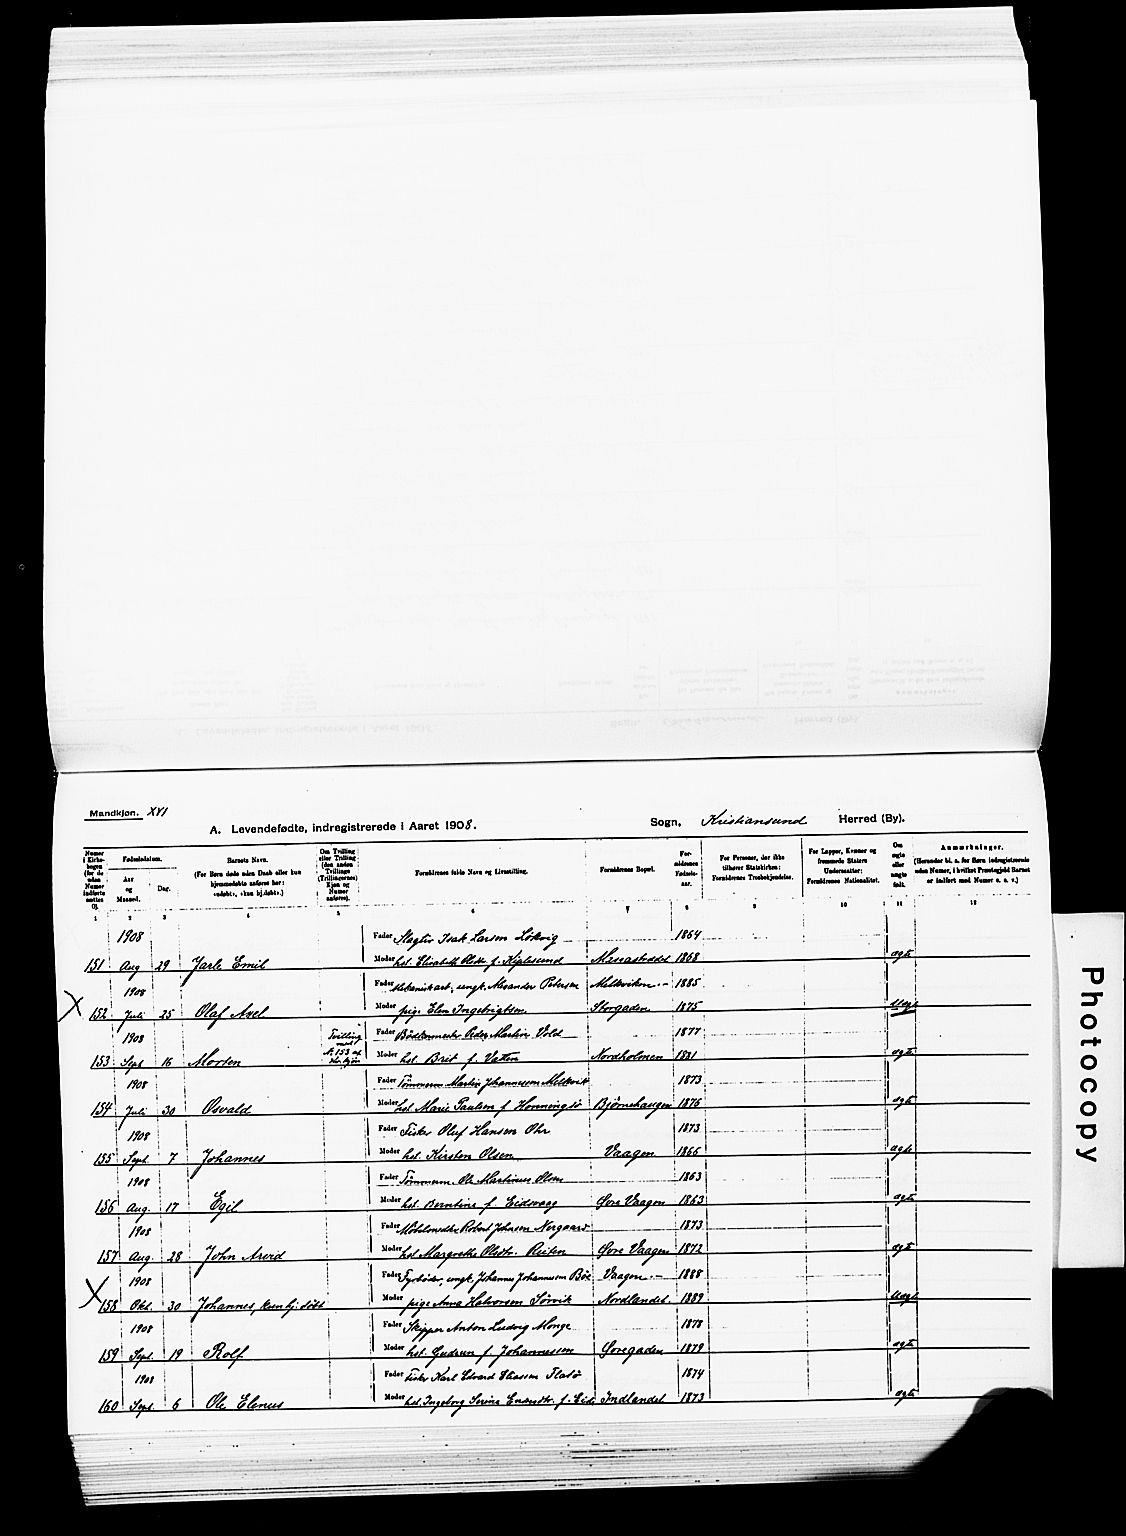 Mandkjøn. XVI
A. Levendefødte, indregistrerede i Aaret 1908. Sogn, Kristiansund Herred (By).
Numer i Kirkebogen (for de uden Numer indførte sættes 0).
Fødselsdatum.
Aar og Maaned.
Dag.
Barnets Navn.
(For Børn døde uden Daab eller kun hjemmedøbte anføres her: «udøbt», «kun hj.døbt».)
Om Tvilling eller Trilling (den anden Tvillings (Trillingernes) Kjøn og Numer anføres).
Forældrenes fulde Navn og Livsstilling.
Forældrenes Bopæl.
Forældrenes Fødselsaar.
For Personer, der ikke tilhører Statskirken: Forældrenes Trosbekjendelse.
For Lapper, Kvæner og fremmede Staters Undersaatter: Forældrenes Nationalitet.
Om ægte eller uægte født.
Anmærkninger.
(Herunder bl. a. for Børn indregistrerede uden Numer, i hvilket Præstegjeld Barnet er indført med Numer o. s. v.)
1 2 3 4 5 6 7 8 9 10 11 12
1908 Fader Slagter Isak Larsen Løkvig 1864
151 Aug 29 Jarle Emil Moder hst. Elisabeth f. 1868 ægte
1908 Fader ungk. Alexander Petersen Melkviken 1885
X 152 Juli 25 Olaf Axel Moder pige Elen Ingebrigtsen Storgaden 1875 Uægte
1908 Tvilling med N. 153 af Fader Bødkermester Peder Martin Vold 1877
153 Sept 16 Morten Moder hst. Brit f. Vatten Nordholmen 1881 ægte
1908 Fader Tømmerm Martin Johannessen Melkvik 1873
154 Juli 30 Osvald Moder hst. Marie Paulsen f. Honningsø Bjørnehaugen 1876 ægte
1908 Fader Fisker Oluf Hansen Ohr 1873
155 Sept. 7 Johannes Moder hst. Kirsten Olsen Vaagen 1866 ægte
1908 Fader Tømmerm Ole Martinus Olsen 1863
156 Aug. 17 Egil Moder hst. Berntine f. Eidsvaag Søre Vaagen 1863 ægte
1908 Fader Robert Johnsen Nergaard 1873
157 Aug. 28 John Arvid Moder hst Margrethe Olsdtr. Reiten Søre Vaagen 1872 ægte
1908 Fader Fyrbøder, ungk. Johannes Johannessen Böe Vaagen 1888
X 158 Okt. 30 Johannes, kun hj. døbt Moder pige Anna Halvorsen Sørvik Nordlandet 1889 Uægte
1908 Fader Skipper Anton Ludvig Monge 1878
159 Sept. 19 Rolf Moder hst. Gudrun f. Johannessen Soregaden 1879 ægte
1908 Fader Fisker Karl Edvard Eliassen Flatsø 1874
160 Sept. 6 Ole Elenus Moder hst. Ingeborg Serine f. Eide Indlandet 1873 ægte
Photocopy